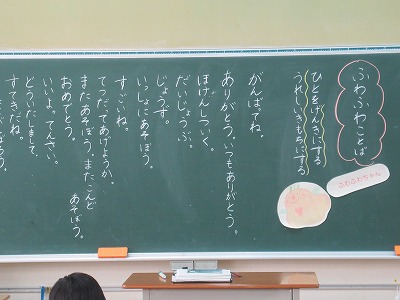 ふわふわことば
ふわふわちゃん
ひとをげんきにする
うれしいきもちにする
がんばってね。
ありがとう。いつもありがとう。
ほけんしついく。
だいじょうぶ。
じょうず。
いっしょにあそぼう。
すごいね。
てつだってあげようか。
またあそぼう。またこんど
あそぼう。
おめでとう。
いいよ。てんさい。
どういたしまして。
すてきだね。